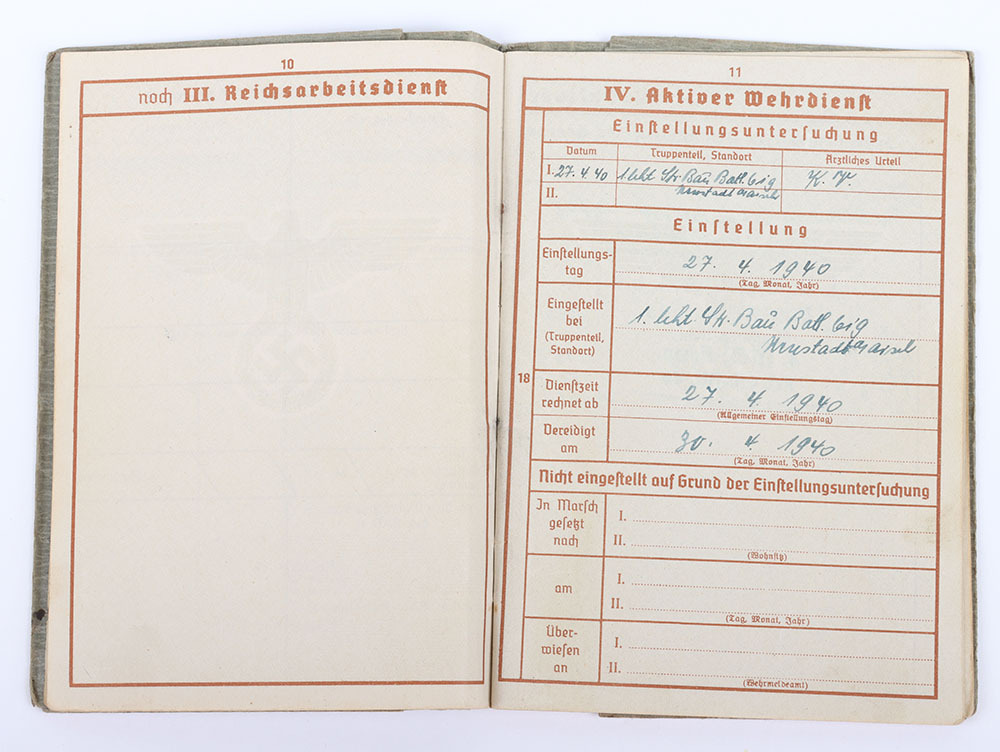 10
noch III. Reichsarbeitsdienst
11
IV. Aktiver Wehrdienst
Einstellungsuntersuchung
Datum Truppenteil, Standort Ärztliches Urteil
I. 27.4.40 1. Bau Batl. K. V.
Neustadt
II.
Einstellung
Einstellungs-
tag
27. 4. 1940
(Tag, Monat, Jahr)
Eingestellt
bei
(Truppenteil,
Standort)
1. Bau Batl.
Neustadt
18
Dienstzeit
rechnet ab
27. 4. 1940
(Allgemeiner Einstellungstag)
Vereidigt
am
30. 4. 1940
(Tag, Monat, Jahr)
Nicht eingestellt auf Grund der Einstellungsuntersuchung
In Marsch
gesetzt
nach
I.
II.
(Wohnsitz)
am
I.
II.
(Tag, Monat, Jahr)
Über-
wiesen
an
I.
II.
(Wehrmeldeamt)